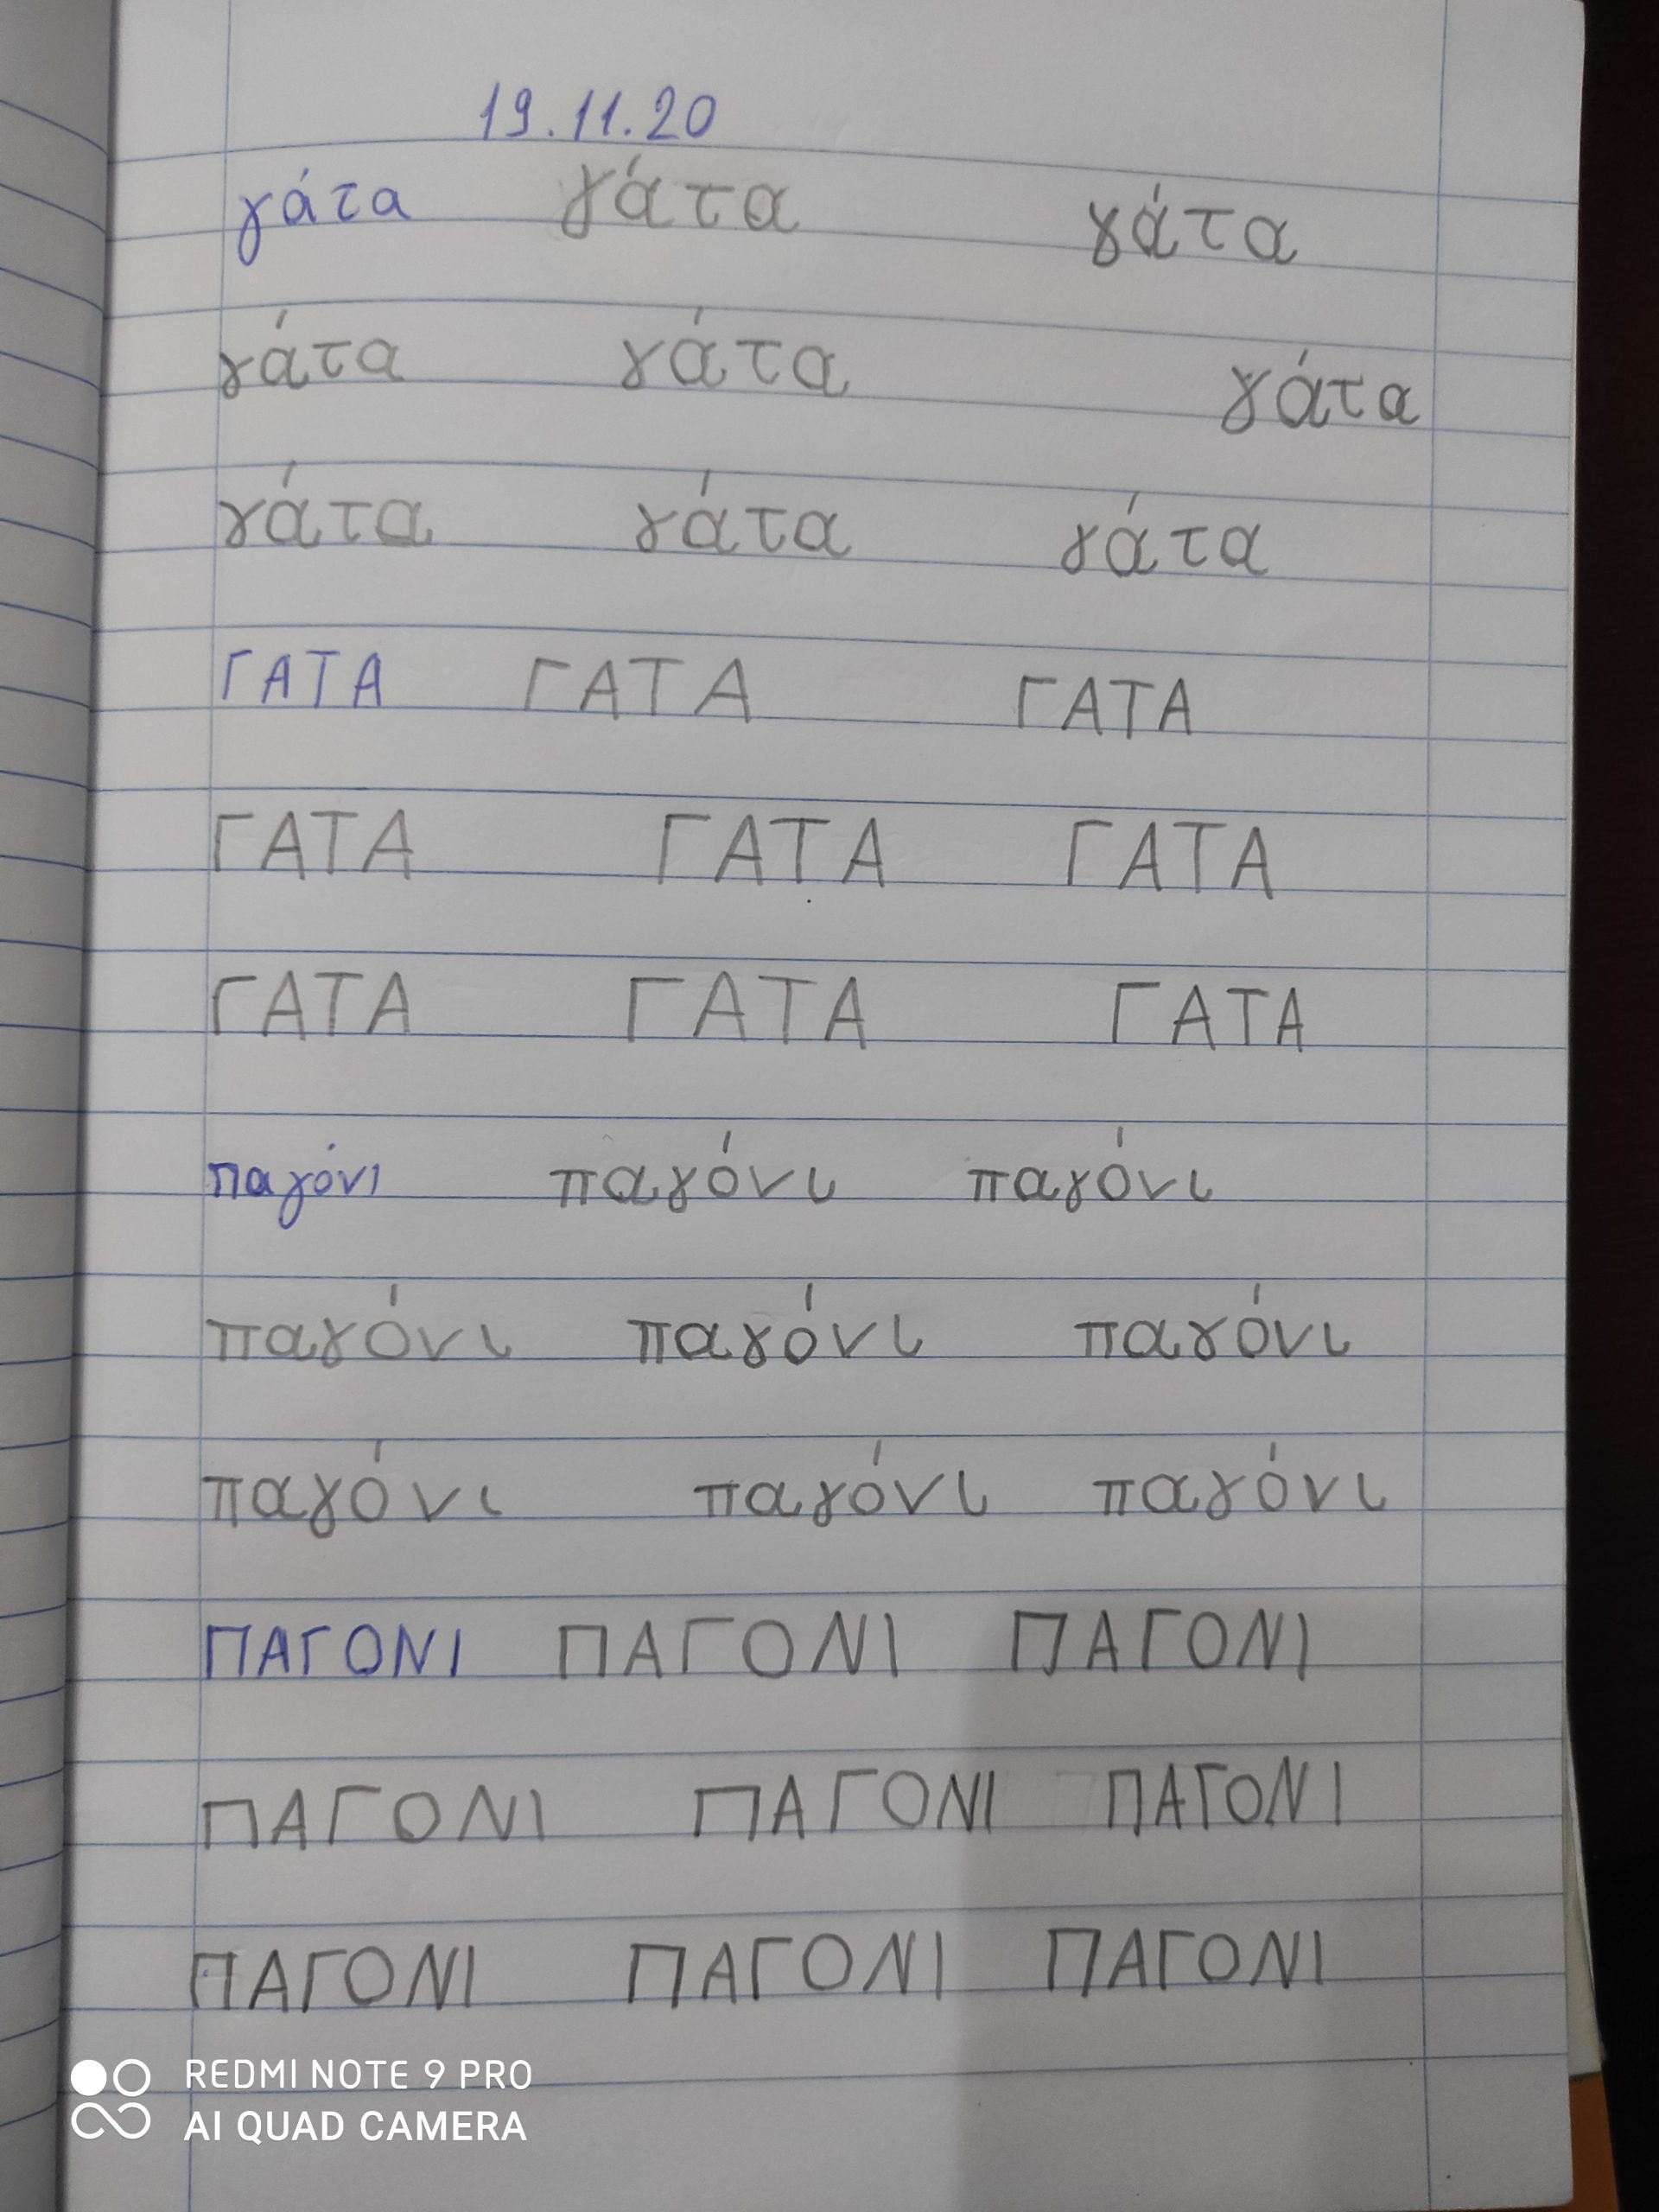 19.11.20
γάτα γάτα γάτα
γάτα γάτα γάτα
γάτα γάτα γάτα
ΓΑΤΑ ΓΑΤΑ ΓΑΤΑ
ΓΑΤΑ ΓΑΤΑ ΓΑΤΑ
ΓΑΤΑ ΓΑΤΑ ΓΑΤΑ
παγόνι παγόνι παγόνι
παγόνι παγόνι παγόνι
παγόνι παγόνι παγόνι
ΠΑΓΟΝΙ ΠΑΓΟΝΙ ΠΑΓΟΝΙ
ΠΑΓΟΝΙ ΠΑΓΟΝΙ ΠΑΓΟΝΙ
ΠΑΓΟΝΙ ΠΑΓΟΝΙ ΠΑΓΟΝΙ
REDMI NOTE 9 PRO
AI QUAD CAMERA